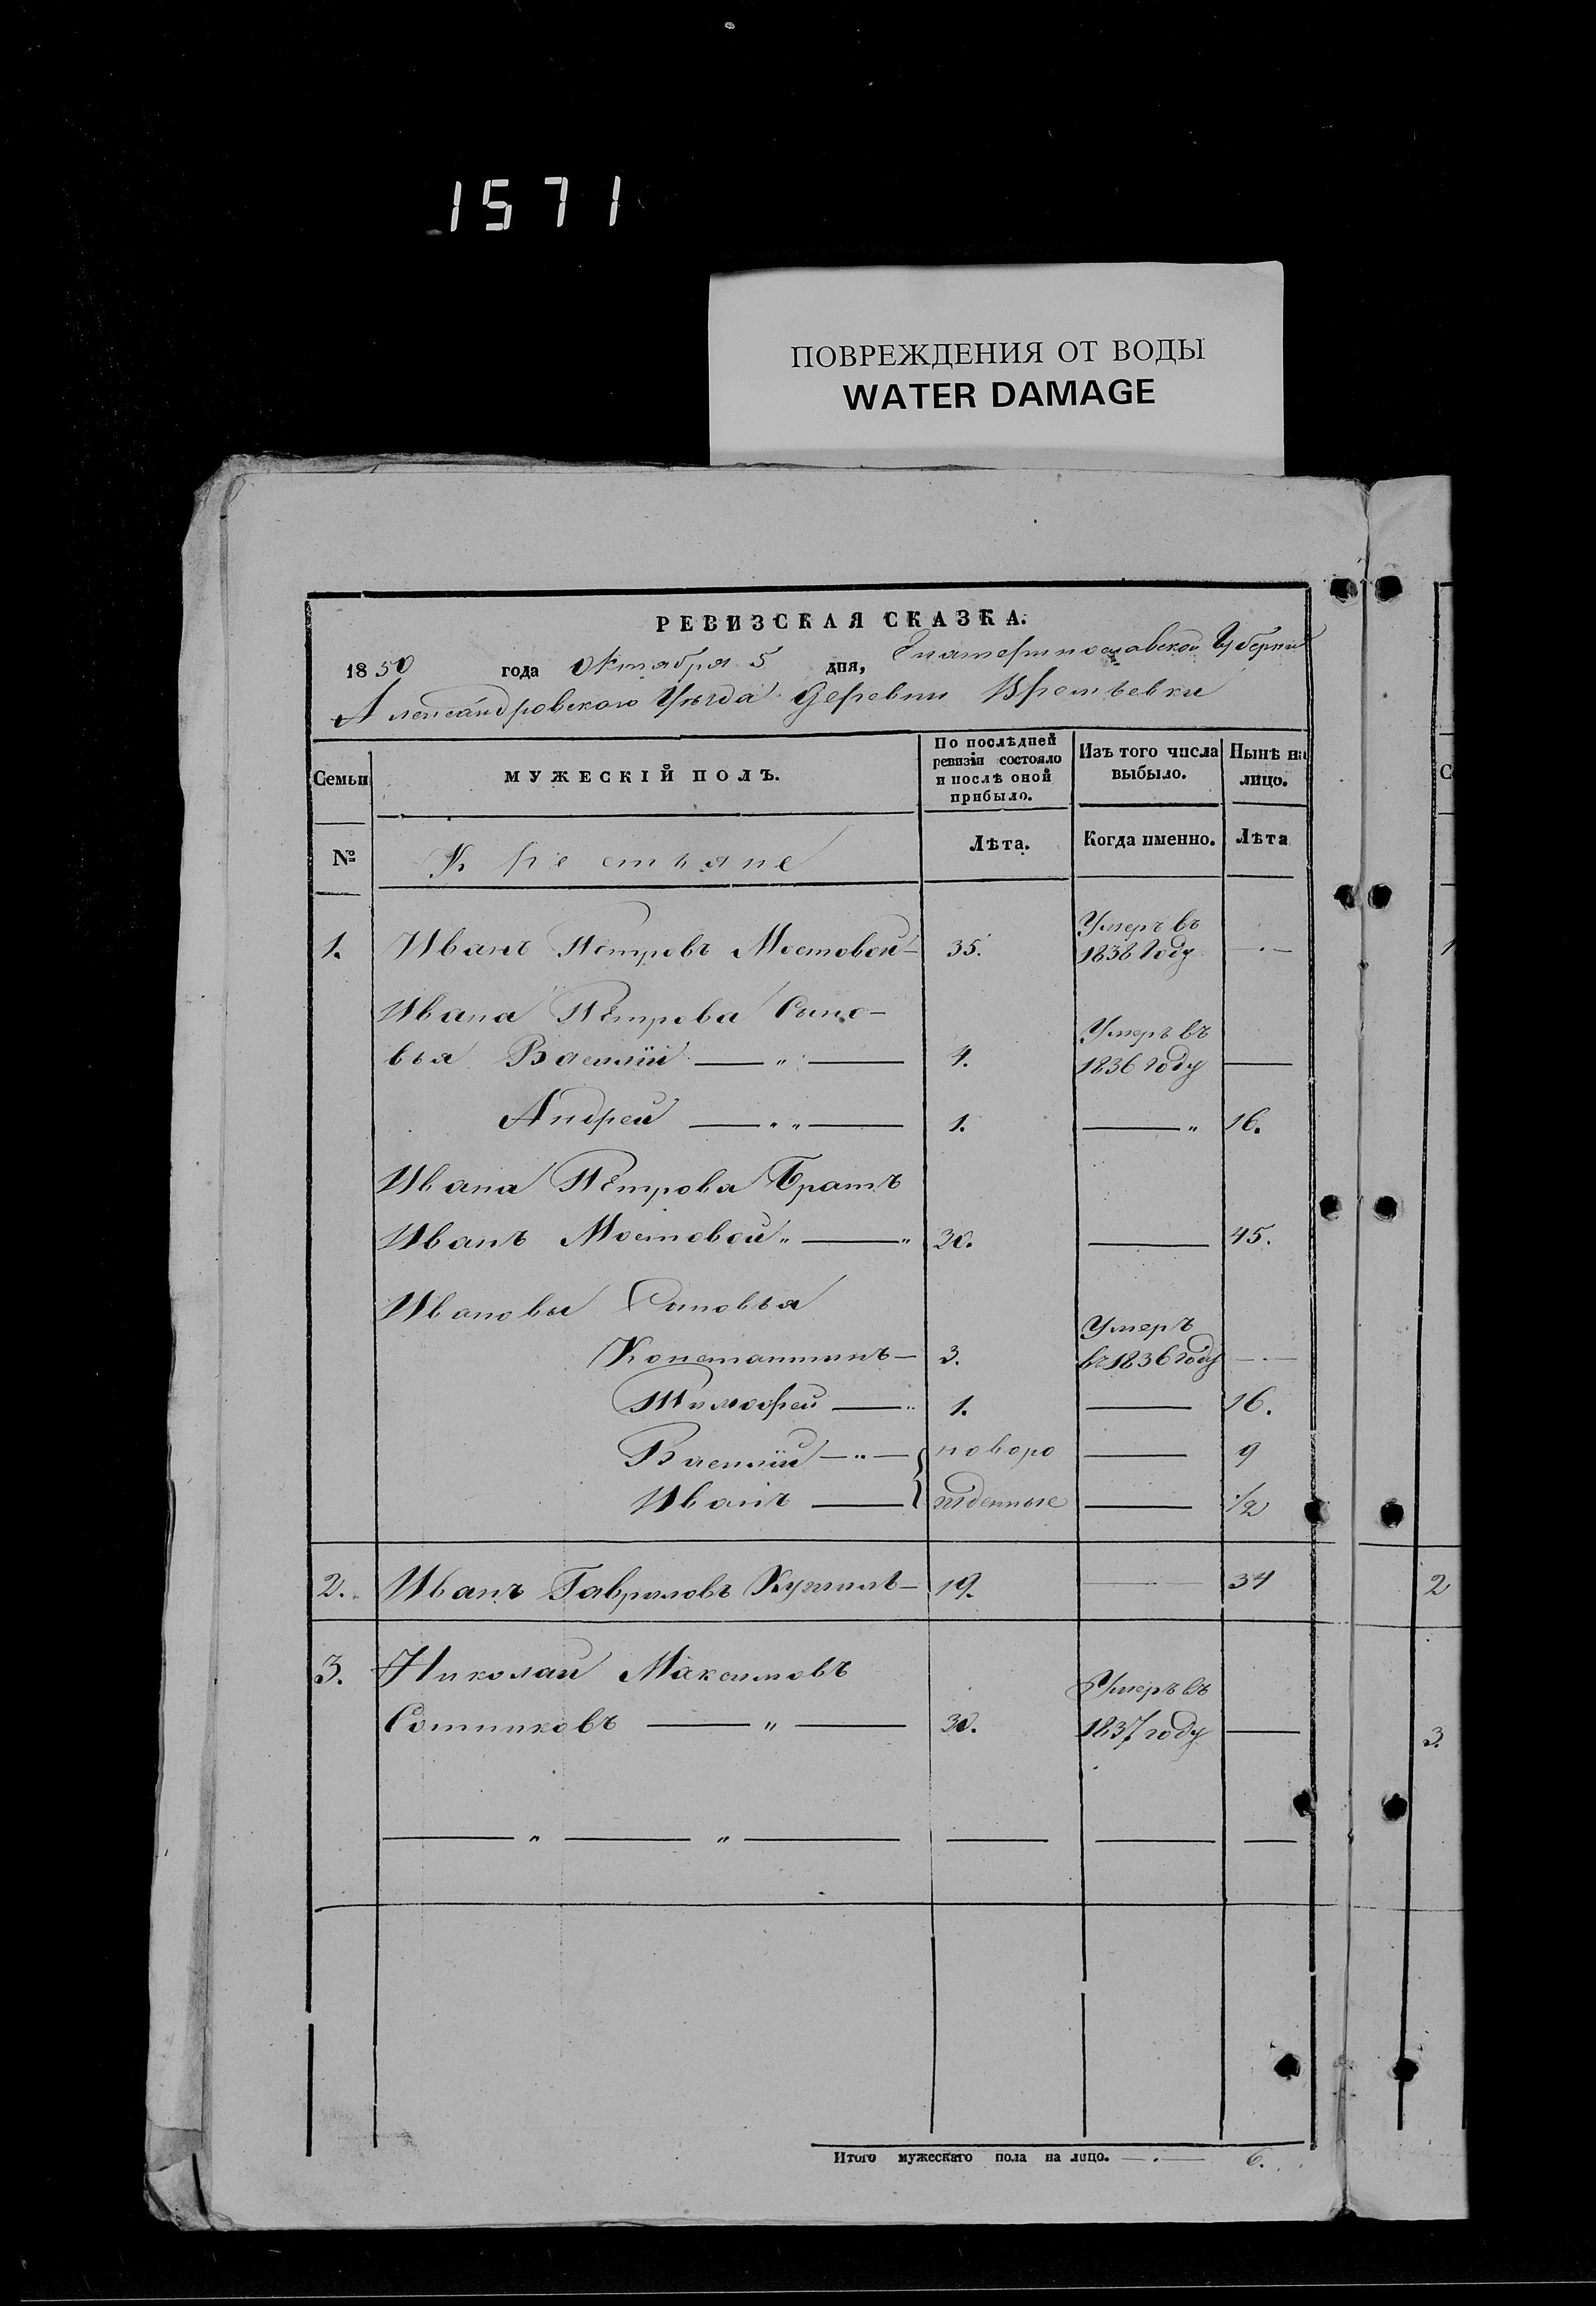 1571
ПОВРЕЖДЕНИЯ ОТ ВОДЫ
WATER DAMAGE
РЕВИЗСКАЯ СКАЗКА.
1850 года Октября 5 дня, Екатеринославской Губернии
Александровского Уѣзда Деревни
Семьи МУЖЕСКІЙ ПОЛЪ. По послѣдней ревизіи состояло и послѣ оной прибыло. Изъ того числа выбыло. Нынѣ на лицо.
№ Крестьяне Лѣта. Когда именно. Лѣта
1. Иванъ Петровъ Мостовой 35. Умеръ въ 1838 году
Ивана Петрова Сыно-
вья Василій 4. Умеръ въ 1836 году
Андрей 1. 16.
Ивана Петрова Братъ
Иванъ Мостовой 30. 45.
Ивановы Сыновья
Константинъ 3. Умеръ въ 1836 году
Тимофей 1. 16.
Василій новоро 9
Иванъ жденные 1/2
2. Иванъ Гавриловъ 19. 34
3. Николай Максимовъ
Сотниковъ 30. Умеръ въ 1837 году
Итого мужескаго пола на лицо. 6.
1
2
3.